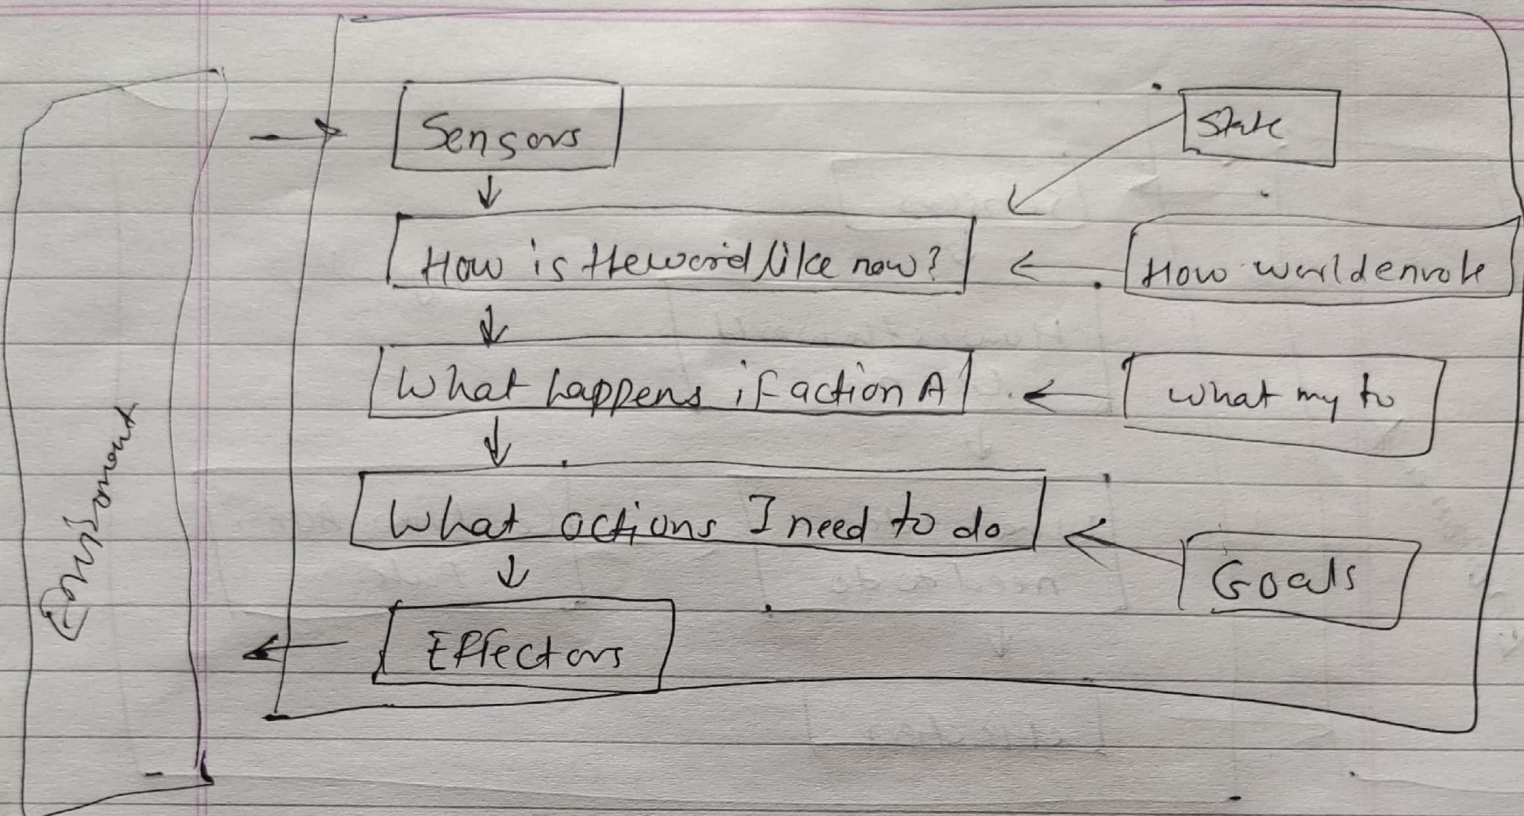 Sensors
State
How is the world like now?
How world envole
What happens if action A
What my to
What actions I need to do
Goals
Effectors
Environment